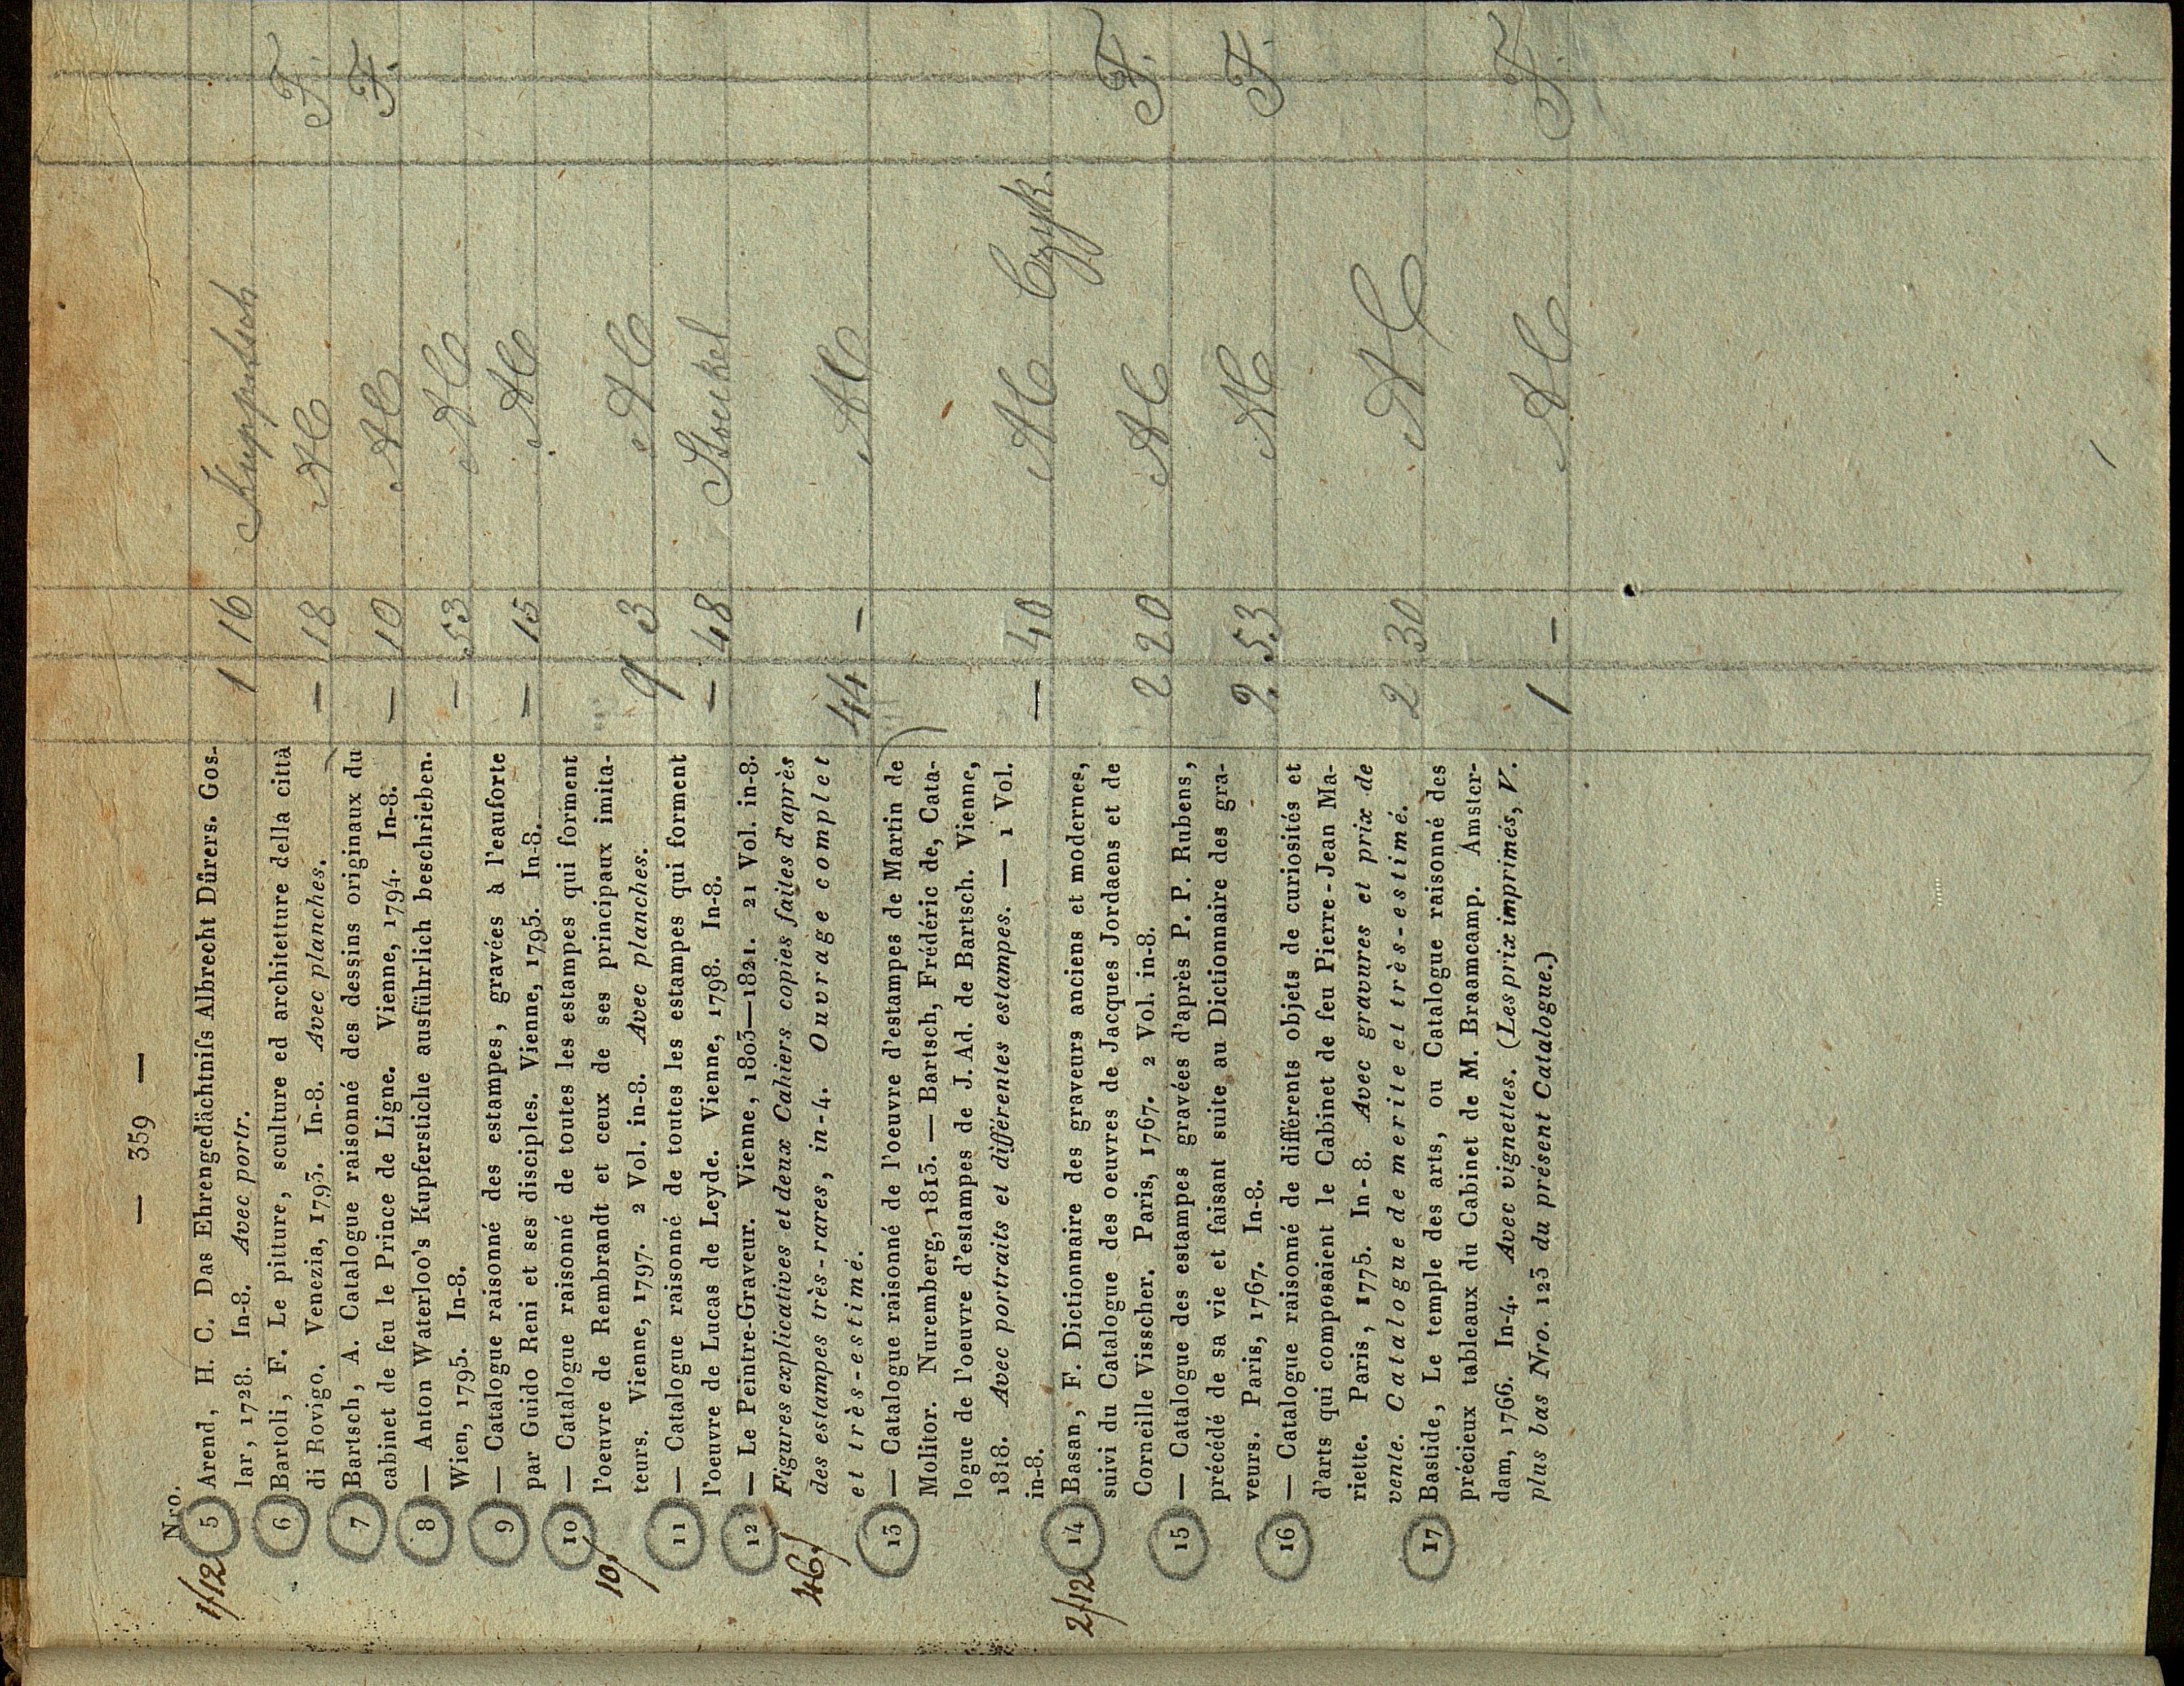 — 359 —
Nro.
1/12 5 Arend, H. C. Das Ehrengedächtniſs Albrecht Dürers. Gos-
lar, 1728. In-8. Avec portr. 1 16
6 Bartoli, F. Le pitture, sculture ed architetture della città
di Rovigo. Venezia, 1793. In-8. Avec planches. — 18 AC F.
7 Bartsch, A. Catalogue raisonné des dessins originaux du
cabinet de feu le Prince de Ligne. Vienne, 1794. In-8. — 10 AC F.
8 — Anton Waterloo's Kupferstiche ausführlich beschrieben.
Wien, 1795. In-8. — 53 AC
9 — Catalogue raisonné des estampes, gravées à l'eauforte
par Guido Reni et ses disciples. Vienne, 1795. In-8. — 15 AC
10 — Catalogue raisonné de toutes les estampes qui forment
l'oeuvre de Rembrandt et ceux de ses principaux imita-
10/ teurs. Vienne, 1797. 2 Vol. in-8. Avec planches. 9 3 AC
11 — Catalogue raisonné de toutes les estampes qui forment
l'oeuvre de Lucas de Leyde. Vienne, 1798. In-8. — 48 Stoeckel
12 — Le Peintre-Graveur. Vienne, 1803—1821. 21 Vol. in-8.
Figures explicatives et deux Cahiers copies faites d'après
46/ des estampes très-rares, in-4. Ouvrage complet
et très-estimé. 44 — AC
13 — Catalogue raisonné de l'oeuvre d'estampes de Martin de
Molitor. Nuremberg, 1813. — Bartsch, Frédéric de, Cata-
logue de l'oeuvre d'estampes de J. Ad. de Bartsch. Vienne,
1818. Avec portraits et différentes estampes. — 1 Vol.
in-8. — 40 AC Czyk.
2/12 14 Basan, F. Dictionnaire des graveurs anciens et modernes,
suivi du Catalogue des oeuvres de Jacques Jordaens et de
Corneille Visscher. Paris, 1767. 2 Vol. in-8. 2 20 AC F.
15 — Catalogue des estampes gravées d'après P. P. Rubens,
précédé de sa vie et faisant suite au Dictionnaire des gra-
veurs. Paris, 1767. In-8. 2. 53 AC F.
16 — Catalogue raisonné de différents objets de curiosités et
d'arts qui composaient le Cabinet de feu Pierre-Jean Ma-
riette. Paris, 1775. In-8. Avec gravures et prix de
vente. Catalogue de merite et très-estimé. 2 30 AC
17 Bastide, Le temple des arts, ou Catalogue raisonné des
précieux tableaux du Cabinet de M. Braamcamp. Amster-
dam, 1766. In-4. Avec vignettes. (Les prix imprimés, V.
plus bas Nro. 123 du présent Catalogue.) 1 — AC F.